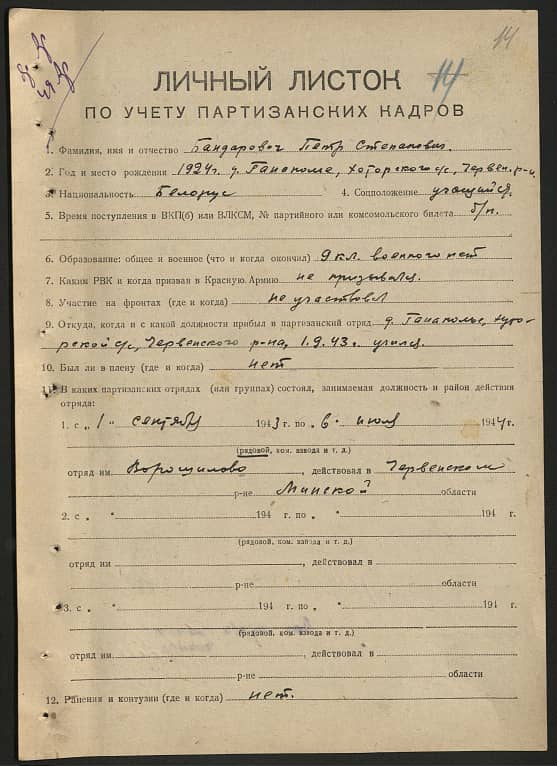 14
14
ЛИЧНЫЙ ЛИСТОК
ПО УЧЕТУ ПАРТИЗАНСКИХ КАДРОВ
1. Фамилия, имя и отчество Бандарович Петр Степанович.
2. Год и место рождения 1924 г. д. Хуторского с/с, Червен. р-н
3. Национальность Белорус 4. Соцположение учащийся.
5. Время поступления в ВКП(б) или ВЛКСМ, № партийного или комсомольского билета б/п.
6. Образование: общее и военное (что и когда окончил) 9 кл. военного нет
7. Каким РВК и когда призван в Красную Армию не призывался.
8. Участие на фронтах (где и когда) не участвовал
9. Откуда, когда и с какой должности прибыл в партизанский отряд д. хутор-
ской с/с, Червенского р-на, 1.9.43 г. учился.
10. Был ли в плену (где и когда) нет
11. В каких партизанских отрядах (или группах) состоял, занимаемая должность и район действия
отряда:
1. с „ 1 " сентября 1943 г. по „ 6 " июля 1944 г.
(рядовой, ком. взвода и т. д.)
отряд им. Ворошилова, действовал в Червенском
р-не Минской области
2. с „ " 194 г. по „ " 194 г.
(рядовой, ком. взвода и т. д.)
отряд им , действовал в
р-не области
3. с „ " 194 г. по „ " 194 г.
(рядовой, ком. взвода и т. д.)
отряд им. действовал в
р-не области
12. Ранения и контузии (где и когда) нет.